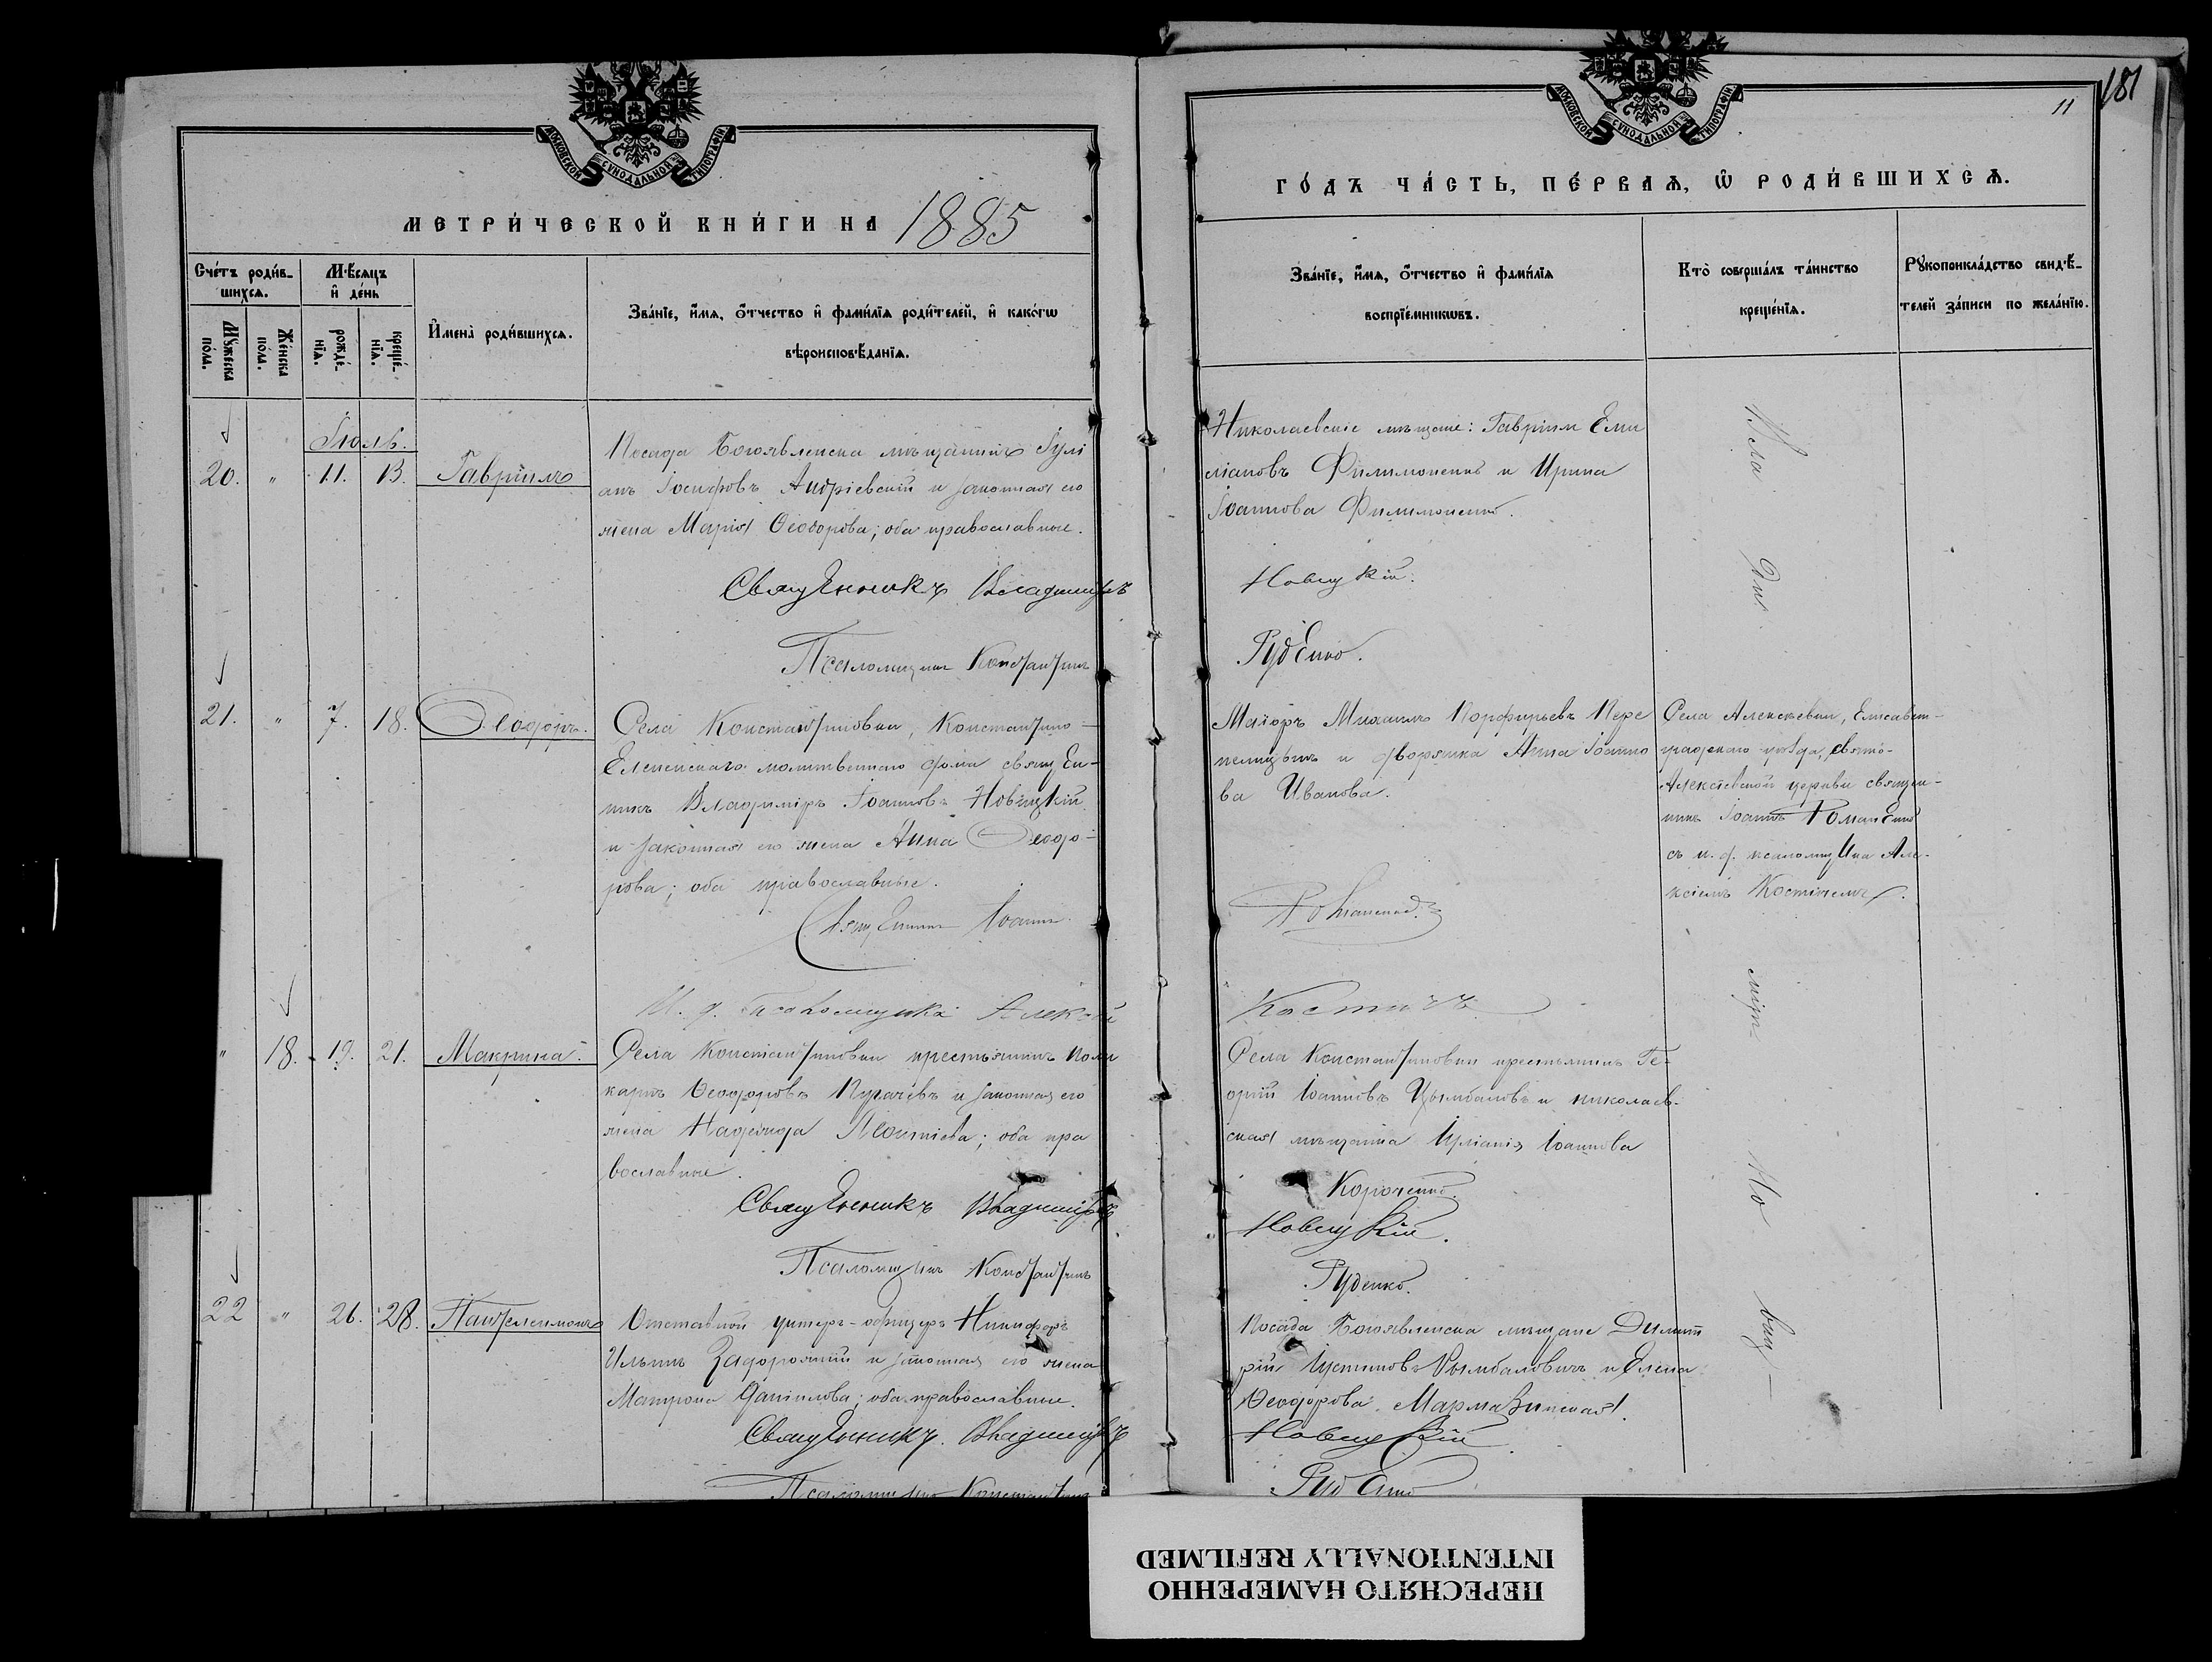 МОСКОВСКОЙ СѴНОДАЛЬНОЙ ТИПОГРАФІИ
МЕТРИ́ЧЕСКОЙ КНИ́ГИ НА 1885
Сче́тъ роди́в-
шихсѧ.
Мꙋ́жеска
по́ла.
Же́нска
по́ла.
М҃ѣсѧцъ
и҆ де́нь
рожде́-
нїѧ.
креще́-
нїѧ.
И҆мена̀ роди́вшихсѧ.
Зва́нїе, и҆́мѧ, ѻ҆́тчество и҆ фами́лїѧ роди́телей, и҆ како́гѡ
вѣроисповѣ́данїѧ.
Іюль.
20. " 11. 13. Гавріилъ
Посада Богоявленска мѣщанинъ Іулі
анъ Іосифовъ Андріевскій и законная его
жена Марія Ѳеодорова; оба православные.
Священникъ Владиміръ
Псаломщикъ Константинъ
21. " 7. 18. Ѳеодоръ.
Села Константиновки, Константино-
Еленинскаго молитвеннаго дома священ-
никъ Владиміръ Іоанновъ Новицкій
и законная его жена Анна Ѳеодо-
рова; оба православные.
Священникъ Іоаннъ
И. д. Псаломщика Алексій
" 18. 19. 21. Макрина.
Села Константиновки крестьянинъ Поли
карпъ Ѳеодоровъ Пугачевъ и законная его
жена Надежда Леонтіева; оба пра
вославные.
Священникъ Владиміръ
Псаломщикъ Константинъ
22 " 26. 28. Пантелеимонъ
Отставной унтеръ-офицеръ Никифоръ
Ильинъ Задорожній и законная его жена
Матрона Даніилова; оба православные.
Священникъ Владиміръ
Псаломщикъ Константинъ
181
11
МОСКОВСКОЙ СѴНОДАЛЬНОЙ ТИПОГРАФІИ
ГО́ДЪ ЧА́СТЬ, ПЕ́РВАѦ, Ѡ҆ РОДИ́ВШИХСѦ.
Зва́нїе, и҆́мѧ, ѻ҆́тчество и҆ фами́лїѧ
воспрїе́мникѡвъ.
Кто̀ соверша́лъ та́инство
креще́нїѧ.
Рꙋкоприкла́дство свидѣ́-
телей за́писи по жела́нїю.
Николаевскіе мѣщане: Гавріилъ Еми
ліановъ Филимоненко и Ирина
Іоаннова Филимоненко.
Новицкій.
Руденко.
Маіоръ Михаилъ Порфирьевъ Пере
пелицынъ и дворянка Анна Іоанно
ва Иванова.
Села Алексѣевки, Елисавет-
градскаго уѣзда, Свято-
Алексіевской церкви священ-
никъ Іоаннъ Романенко
съ и. д. псаломщика Але-
ксіемъ Костичемъ.
Романенко.
Костичъ
Села Константиновки крестьянинъ Ге-
оргій Іоанновъ Цымбаловъ и николаев-
ская мѣщанка Іуліанія Іоаннова
Короченко.
Новицкій.
Руденко.
Посада Богоявленска мѣщане Димит
рій Іустиновъ Цымбаловичъ и Елена
Ѳеодорова Мармазинская.
Новицкій
Руденко
ПЕРЕСНЯТО НАМЕРЕННО
INTENTIONALLY REFILMED